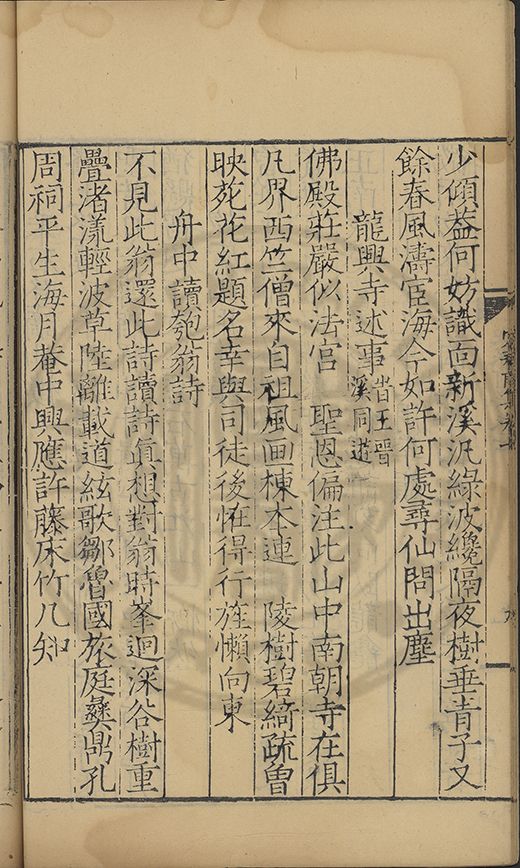 少傾葢何妨識面新溪汎綠波纔隔夜樹垂青子又
餘春風濤宦海今如許何處尋仙問出塵
龍興寺述事 皆王晉溪同遊
佛殿莊嚴似法宮 聖恩偏注此山中南朝寺在俱
凡界西竺僧來自祖風画棟本連 陵樹碧綺疏曾
映苑花紅題名幸與司徒後恠得行旌懶向東
舟中讀匏翁詩
不見此翁還此詩讀詩眞想對翁時峯迴深谷樹重
疊渚漾輕波草陸離載道絃歌鄒魯國旅庭彝鼎孔
周祠平生海月菴中興應許藤床竹几知